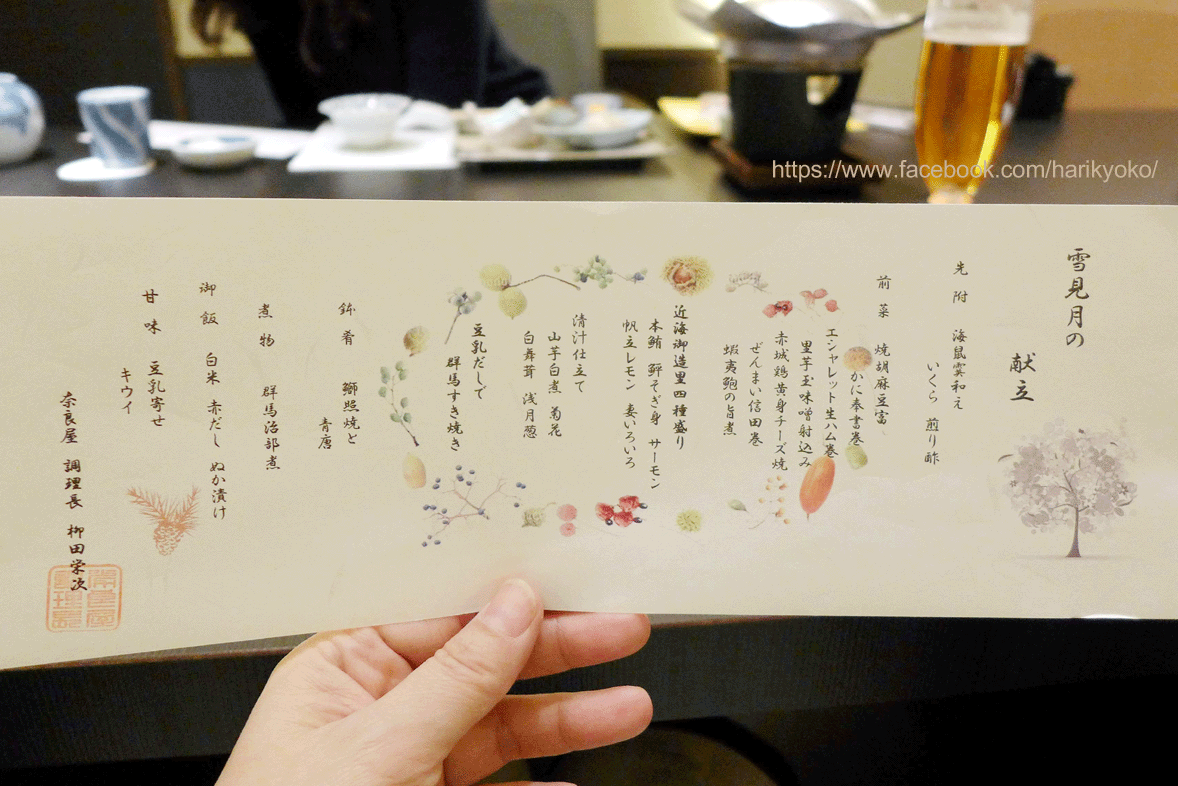 https://www.facebook.com/harikyoko/
雪見月の
献立
先附 海鼠霙和え
いくら 煎り酢
前菜 焼胡麻豆富
かに奉書巻
エシャレット生ハム巻
里芋玉味噌射込み
赤城鶏黄身チーズ焼
ぜんまい信田巻
蝦夷鮑の旨煮
近海御造里四種盛り
本鮪 鮃そぎ身 サーモン
帆立レモン 妻いろいろ
清汁仕立て
山芋白煮 菊花
白舞茸 浅月葱
豆乳だしで
群馬すき焼き
鉢肴 鰤照焼と
青唐
煮物 群馬治部煮
御飯 白米 赤だし ぬか漬け
甘味 豆乳寄せ
キウイ
奈良屋 調理長 柳田栄次